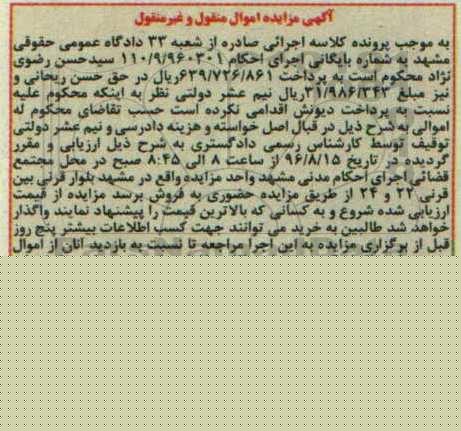 آگهی مزایده اموال منقول و غیرمنقول
به موجب پرونده کلاسه اجرائی صادره از شعبه ۳۳ دادگاه عمومی حقوقی
مشهد به شماره بایگانی اجرای احکام ۱۱۰/۹/۹۶۰۳۰۱ سیدحسن رضوی
نژاد محکوم است به پرداخت ۶۳۹/۷۲۶/۸۶۱ریال در حق حسن ریحانی و
نیز مبلغ ۳۱/۹۸۶/۳۴۳ریال نیم عشر دولتی نظر به اینکه محکوم علیه
نسبت به پرداخت دیونش اقدامی نکرده است حسب تقاضای محکوم له
اموالی به شرح ذیل در قبال اصل خواسته و هزینه دادرسی و نیم عشر دولتی
توقیف توسط کارشناس رسمی دادگستری به شرح ذیل ارزیابی و مقرر
گردیده در تاریخ ۹۶/۸/۱۵ از ساعت ۸ الی ۸:۴۵ صبح در محل مجتمع
قضائی اجرای احکام مدنی مشهد واحد مزایده واقع در مشهد بلوار قرنی بین
قرنی ۲۲ و ۲۴ از طریق مزایده حضوری به فروش برسد مزایده از قیمت
ارزیابی شده شروع و به کسانی که بالاترین قیمت را پیشنهاد نمایند واگذار
خواهد شد طالبین به خرید می توانند جهت کسب اطلاعات بیشتر پنج روز
قبل از برگزاری مزایده به این اجرا مراجعه تا نسبت به بازدید آنان از اموال